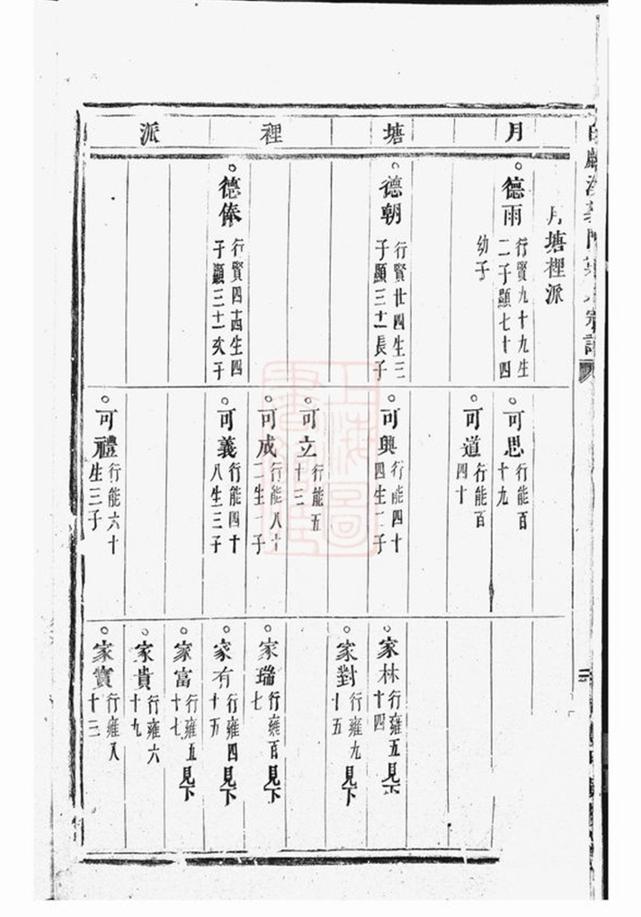 月塘裡派
月塘裡派
德雨 行賢九十九生
二子顯七十四
幼子
德朝 行賢廿四生三
子顯三十一長子
德俸 行賢四十四生四
子顯三十一次子
可思 行能百
十九
可道 行能百
四十
可興 行能四十
四生二子
可立 行能五
十三
可成 行能八十
二生一子
可義 行能四十
八生三子
可禮 行能六十
生三子
家林 行雍五見下
十四
家對 行雍九見下
十五
家瑞 行雍百見下
七
家有 行雍四見下
十五
家富 行雍五見下
十七
家貴 行雍六
十九
家實 行雍八
十三
上海圖